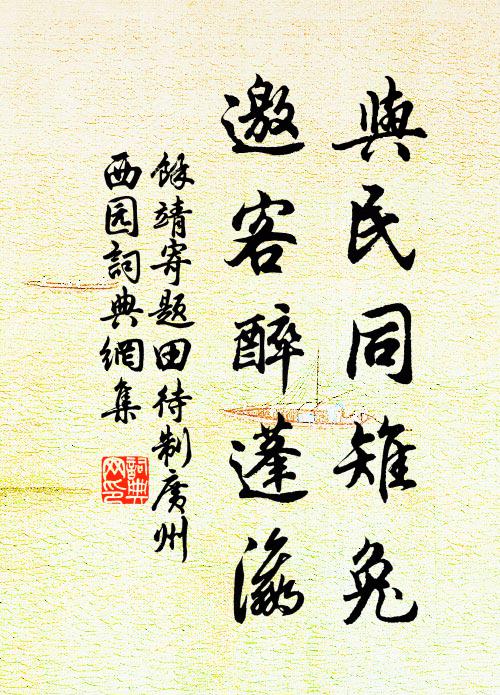 與民同雉兔
邀客醉蓬瀛
餘靖寄題田待制廣州
西园詞典網集
詞典网印